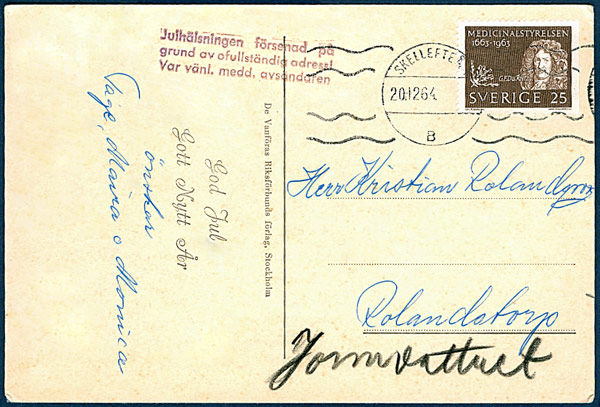 Julhälsningen försenad på
grund av ofullständig adress!
Var vänl. medd. avsändaren
God Jul
Gott Nytt År
önskar
Tage, Maira o Monica
De Vanföras Riksförbunds förlag, Stockholm
SKELLEFTE
20.12.64
B
MEDICINALSTYRELSEN
1663-1963
G.EDuRIE
SVERIGE 25
Herr Kristian Rolandgren
Rolandstorp
Jormvattnet